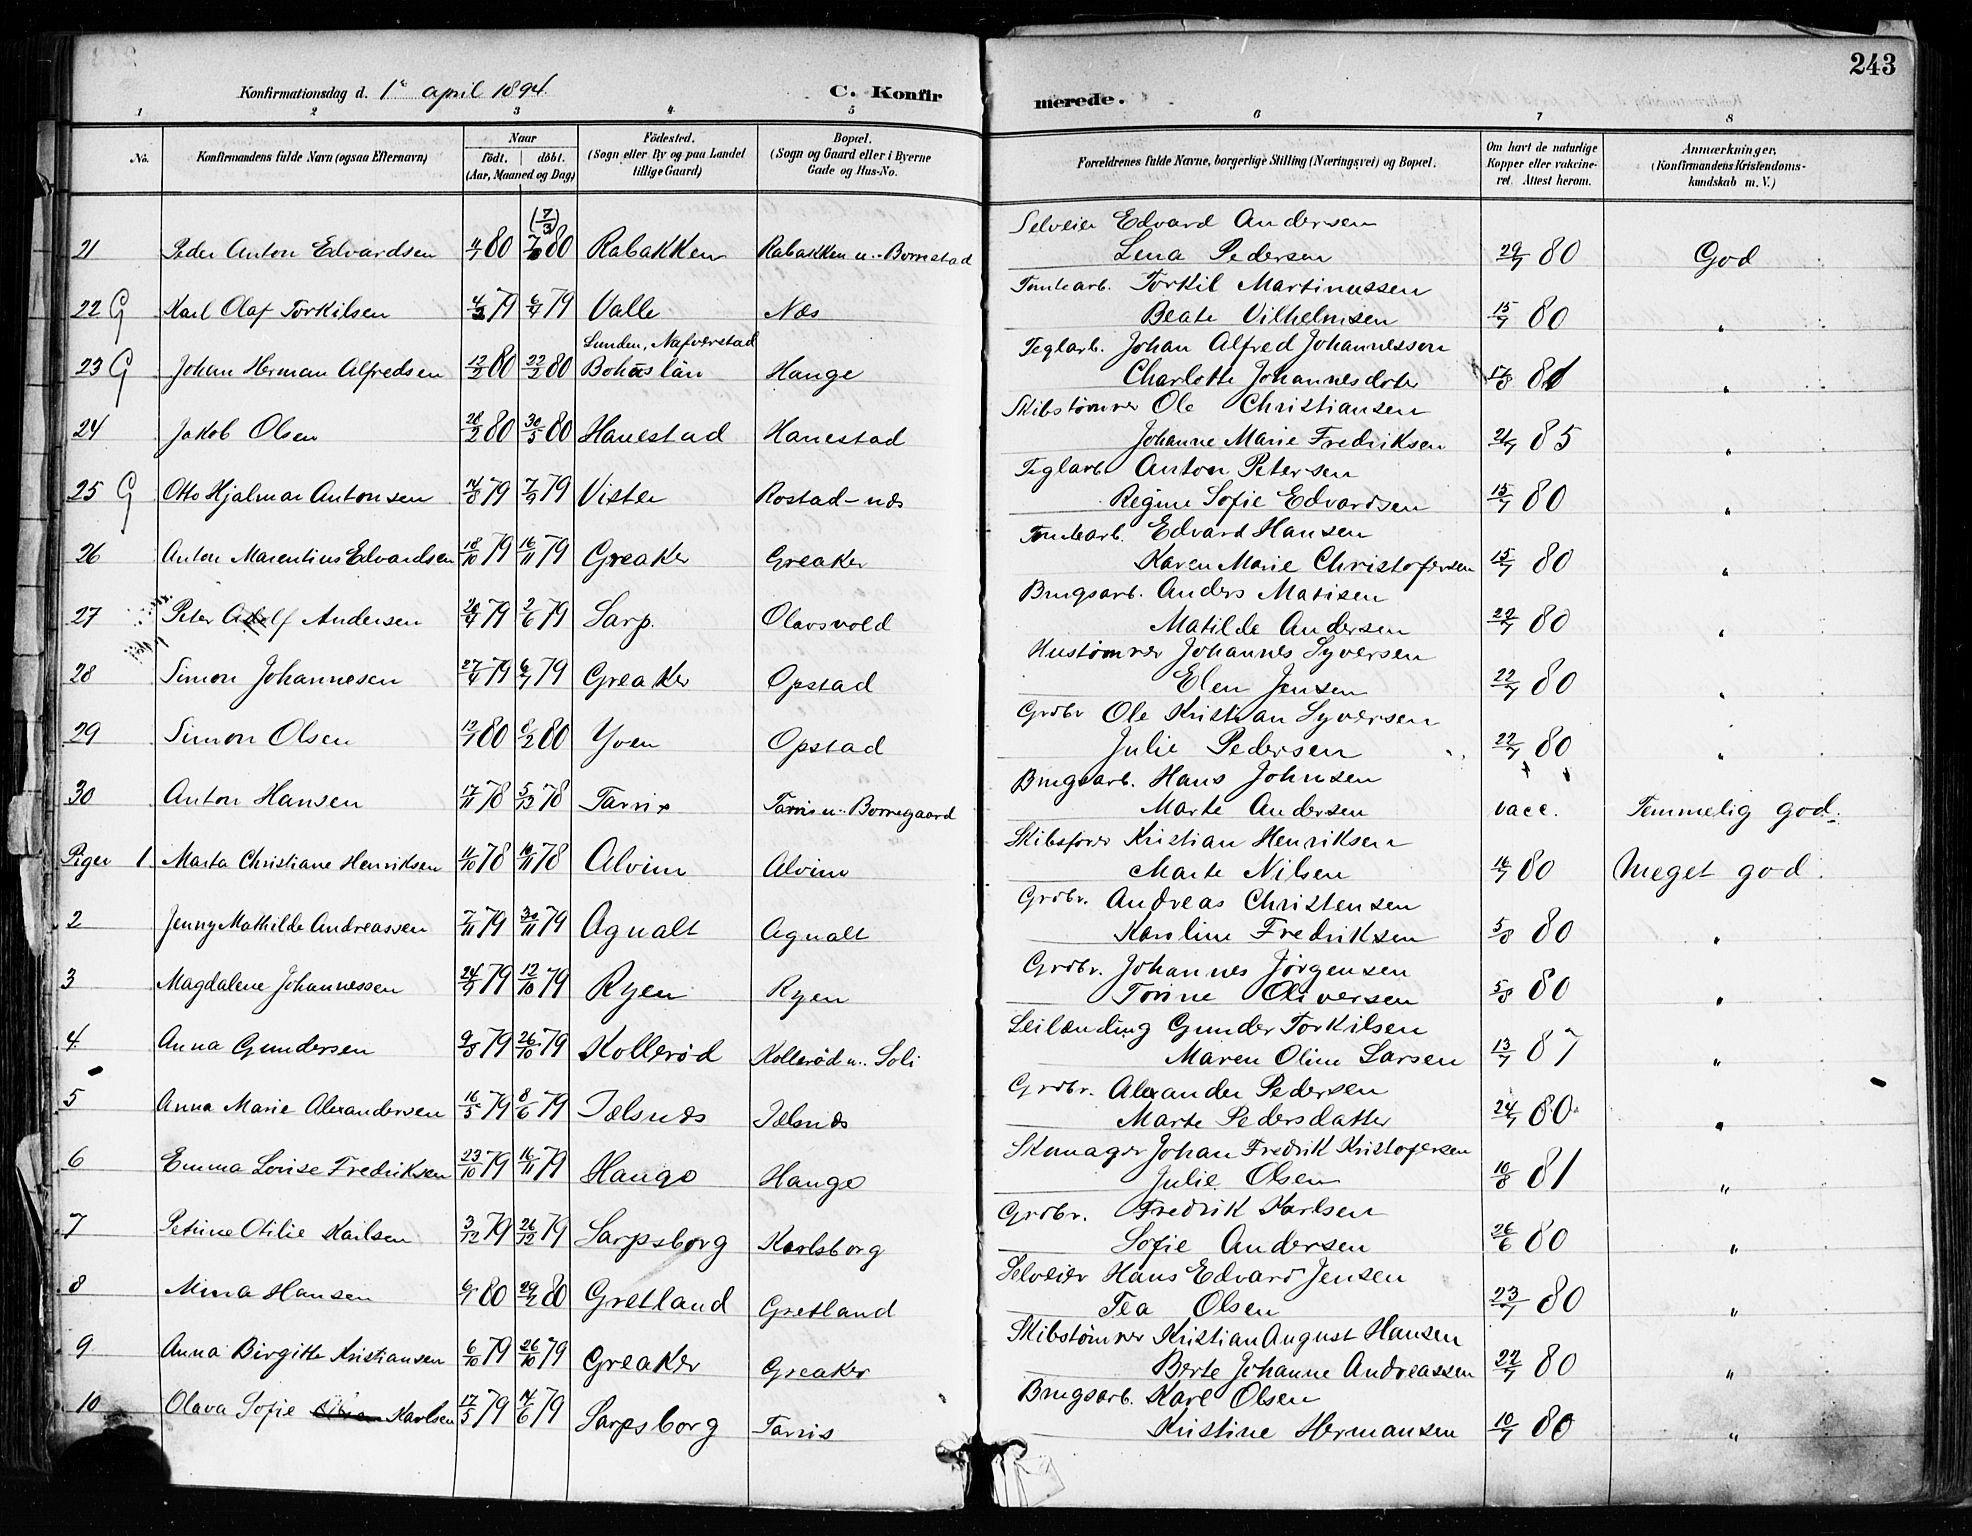 243
Konfirmationsdag d. 1e april 1894. C. Konfirmerede.
1 2 3 4 5 6 7 8
No. Konfirmandens fulde Navn (ogsaa Efternavn) Naar født. døbt. (Aar, Maaned og Dag) Fødested. (Sogn eller By og paa Landet tillige Gaard) Bopæl. (Sogn og Gaard eller i Byerne Gade og Hus-No. Forældrenes fulde Navne, borgerlige Stilling (Næringsvei) og Bopæl. Om havt de naturlige Kopper eller vakcineret. Attest herom. Anmærkninger, (Konfirmandens Kristendomskundskab m. V.)
(7/3)
Selveier Edvard Andersen
21 Peder Anton Edvardsen 80 80 Rabakken Rabakken u. Borrestad Lena Pedersen 29/7 80 God
Tomtearb. Torkil Martinussen
22 G Karl Olaf Torkilsen 79 6/4 79 Valle Næs Beate Vilhelmsen 15/7 80 "
Lunden, Nafverstad
Teglarb. Johan Alfred Johannesson
23 G Johan Herman Alfredsen 12/2 80 22/2 80 Bohuslän Hauge Charlotte Johannesdoter 17/8 81 "
Skibstømrer Ole Christiansen
24 Jakob Olsen 28/2 80 30/5 80 Hanestad Hanestad Johanne Marie Fredriksen 85 "
Teglarb. Anton Petersen
25 G Otto Hjalmar Antonsen 14/8 79 7/9 79 Vister Rostad-næs Regine Sofie Edvardsen 15/7 80 "
Tomtearb. Edvard Hansen
26 Anton Marentius Edvardsen 18/10 79 16/11 79 Greaker Greaker Karen Marie Christofersen 15/7 80 "
Brugsarb. Anders Matisen
27 Peter Adolf Andersen 79 2/6 79 Sarp. Olavsvold Matilde Andersen 22/7 80 "
Hustømrer Johannes Syversen
28 Simon Johannesen 27/4 79 6/7 79 Greaker Opstad Elen Jensen 22/7 80 "
Grdbr Ole Kristian Syversen
29 Simon Olsen 12/1 80 8/2 80 Yven Opstad Julie Pedersen 22/7 80 "
Brugsarb. Hans Johnsen
30 Anton Hansen 17/11 78 78 Tarris Tarris u. Borregaard Marte Andersen vacc. Temmelig god.
Skibsfører Kristian Henriksen
Piger 1 Marta Christiane Henriksen 78 78 Alvim Alvim Marte Nilsen 80 Meget god.
Grdbr. Andreas Christensen
2 Jenny Mathilde Andreassen 7/11 79 30/11 79 Agnalt Agnalt Karoline Fredriksen 5/8 80 "
Grdbr. Johannes Jørgensen
3 Magdalene Johannessen 24/9 79 12/10 79 Ryen Ryen Torine Oliversen 5/8 80 "
Leilænding Gunder Torkilsen
4 Anna Gundersen 9/8 79 26/10 79 Kollerød Kollerød u. Soli Maren Oline Larsen 13/7 87 "
Grdbr. Alexander Pedersen
5 Anna Marie Alexandersen 16/5 79 8/6 79 Jelsnæs Jelsnæs Marte Pedersdatter 24/7 80 "
Skomager Johan Fredrik Kristofersen
6 Emma Lovise Fredriksen 23/10 79 16/11 79 Hauge Hauge Julie Olsen 10/8 81 "
Grdbr. Fredrik Karlsen
7 Petrine Otilie Karlsen 3/12 79 26/12 79 Sarpsborg Karlsborg Sofie Andersen 26/6 80 "
Selveier Hans Edvard Jensen
8 Mina Hansen 6/1 80 29/2 80 Gretland Gretland Tea Olsen 23/7 80 "
Skibstømrer Kristian August Hansen
9 Anna Birgitte Kristiansen 6/10 79 26/10 79 Greaker Greaker Berte Johanne Andreassen 22/7 80 "
Brugsarb. Karl Olsen
10 Olava Sofie Karlsen 17/5 79 79 Sarpsborg Tarris Kristine Hermansen 10/7 80 "